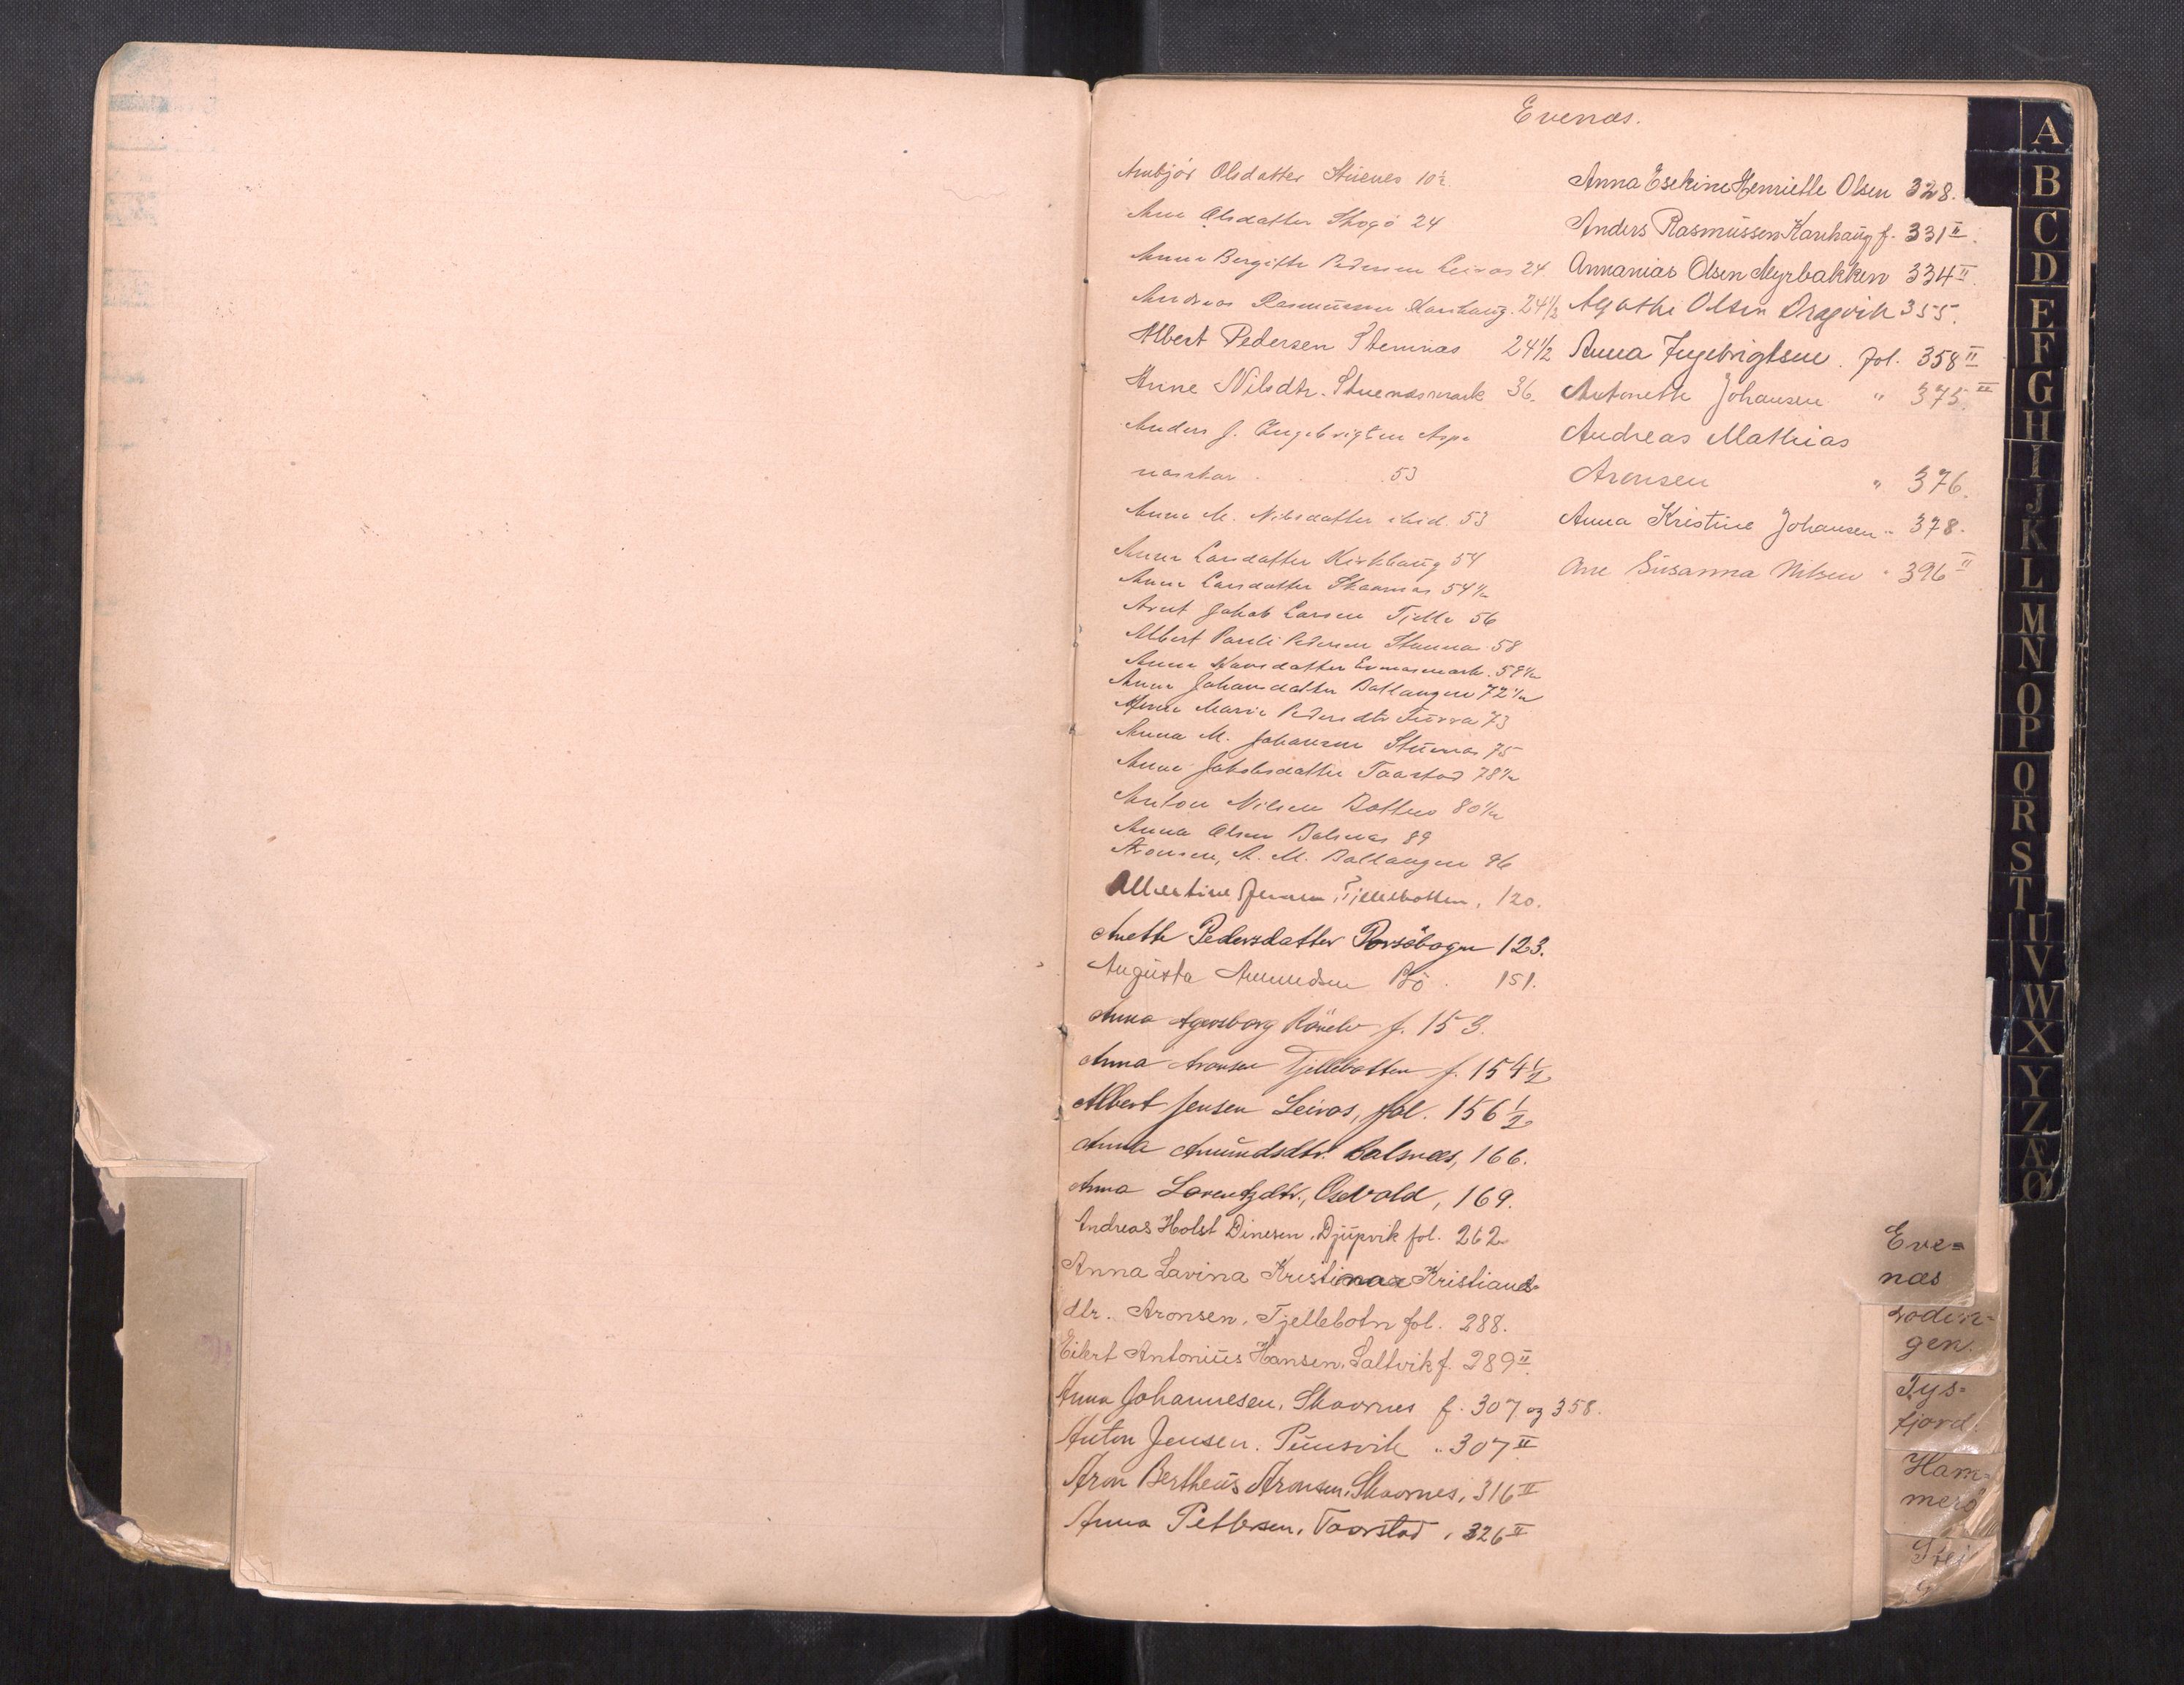 Evenæs.
Anbjør Olsdatter Stuenes 10½
Ane Olsdatter Skogø 24
Anna Bergitte Pedersen Leiros 24
Andreas Rasmussen Karihaug. 24½
Albert Pedersen Stennæs 24½
Anne Nilsdtr. Stuenæsmark 36.
Anders J. Engebrigtsen Aspe
næsskar 53
Anne M. Nilsdatter ibid. 53
Anne Larsdatter Kirkhaug 54
Anne Larsdatter Skaarnæs 54½
Arnt Jakob Larsen Tjelle 56
Albert Pauli Pedersen Stunnæs 58
Anne Hansdatter Evenæsmark. 59½
Anne Johansdatter Ballangen 72½
Anne Marie Pedersdtr 73
Anna M. Johansen Stuenæs 75
Anne Jakobsdatter Taarstad 78½
Anton Nilsen Botten 80½
Anna Olsen Balsnæs 89
Aronsen, A. M. Ballangen 96
Albertine Jensen, Tjellebotten, 120.
Anette Pedersdatter 123.
Augusta Amundsen Bø. 151.
Anna Agersborg f. 153.
Anna Aronsen Tjellebotten f. 154½
Albert Jensen Leiros, fol. 156½
Anna Amundsdtr. Balsnæs, 166.
Anna Lorentzdtr., Osvold, 169.
Andreas Holst Dinesen, Djupvik fol. 262
Anna Lavina Kristinaa Kristians-
dtr. Aronsen, Tjellebotn fol. 288.
Eilert Antonius Hansen, Saltvik f. 289 II
Anna Johannesen, Skaarnes f. 307 og 358.
Anton Jensen. Pünsvik " 307 II
Aron Bertheüs Aronsen, Skaarnes, 316 II
Anna Pettersen, Taarstad, 326 II
Anna Esekine Henriette Olsen 328.
Anders Rasmüssen Karihaug f. 331 II.
Annanias Olsen Myrbakken 334 II.
Agathe Olsen Dragvik 355.
Anna Ingebrigtsen. fol. 358 II
Antonette Johansen " 375. II
Andreas Mathias
Aronsen " 376.
Anna Kristine Johansen " 378.
Ane Susanna Nilsen " 396 II
A
B
C
D
E
F
G
H
I
J
K
L
M
N
O
P
Q
R
S
T
U
V
W
X
Y
Z
Æ
Ø
Eve=
næs
Lodin=
gen.
Tys=
fjord.
Ham=
merø